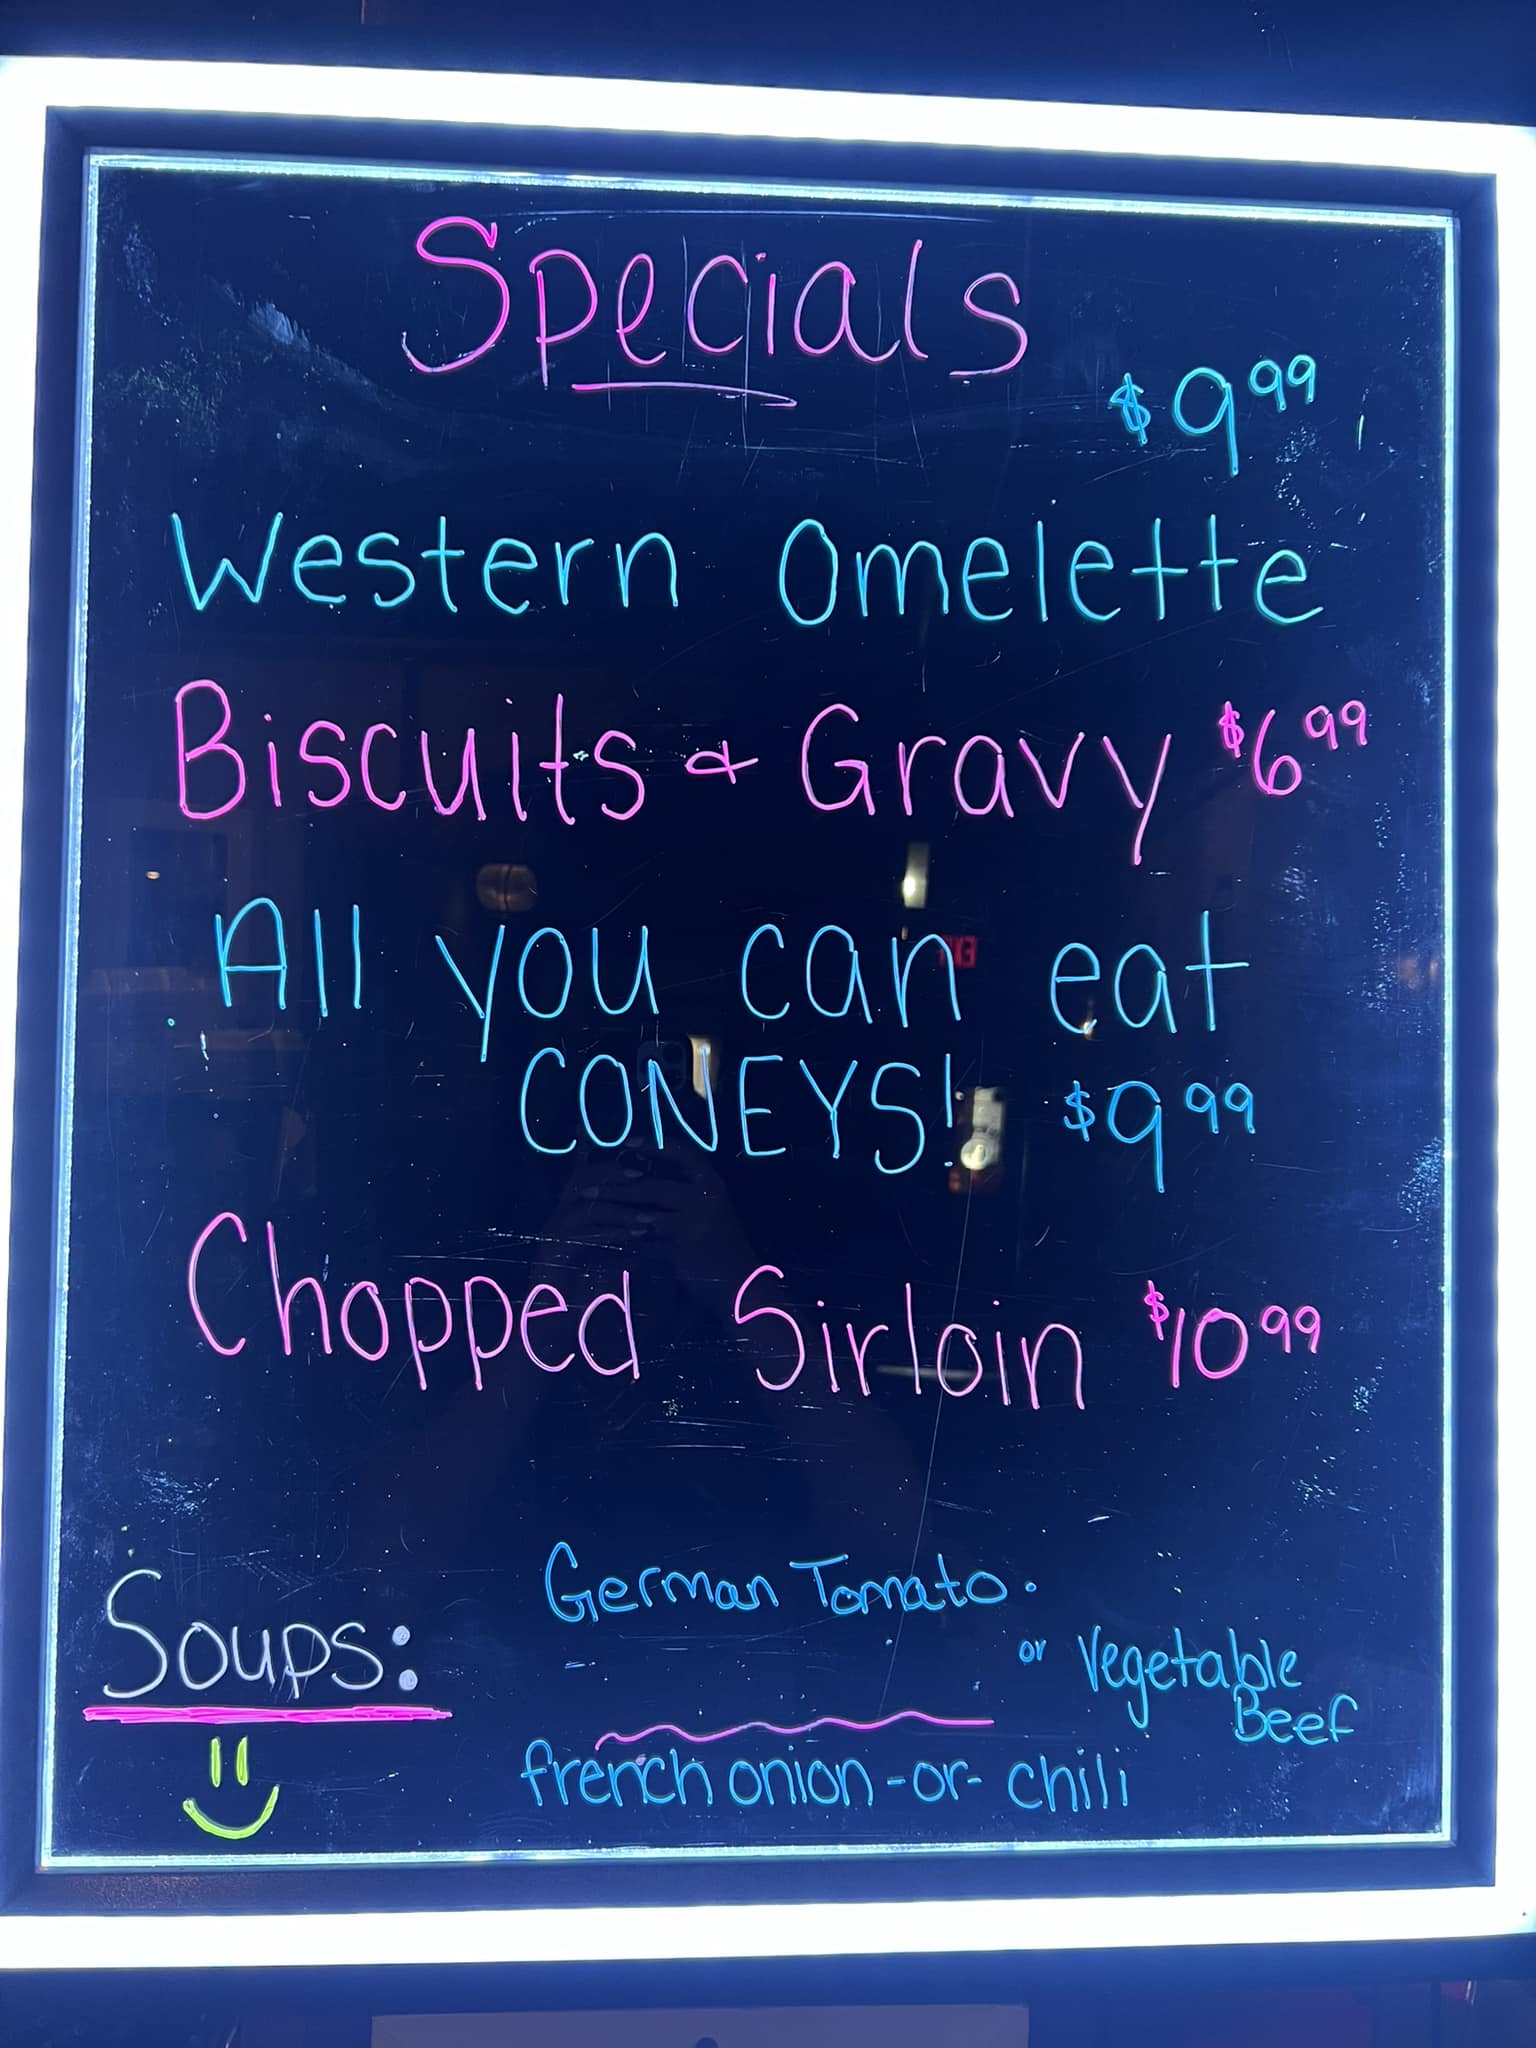 Specials
$9 99
Western Omelette
Biscuits & Gravy $6 99
All you can eat
CONEYS! $9 99
Chopped Sirloin $10 99
German Tomato.
Soups: or Vegetable
Beef
french onion -or- chili
EXIT